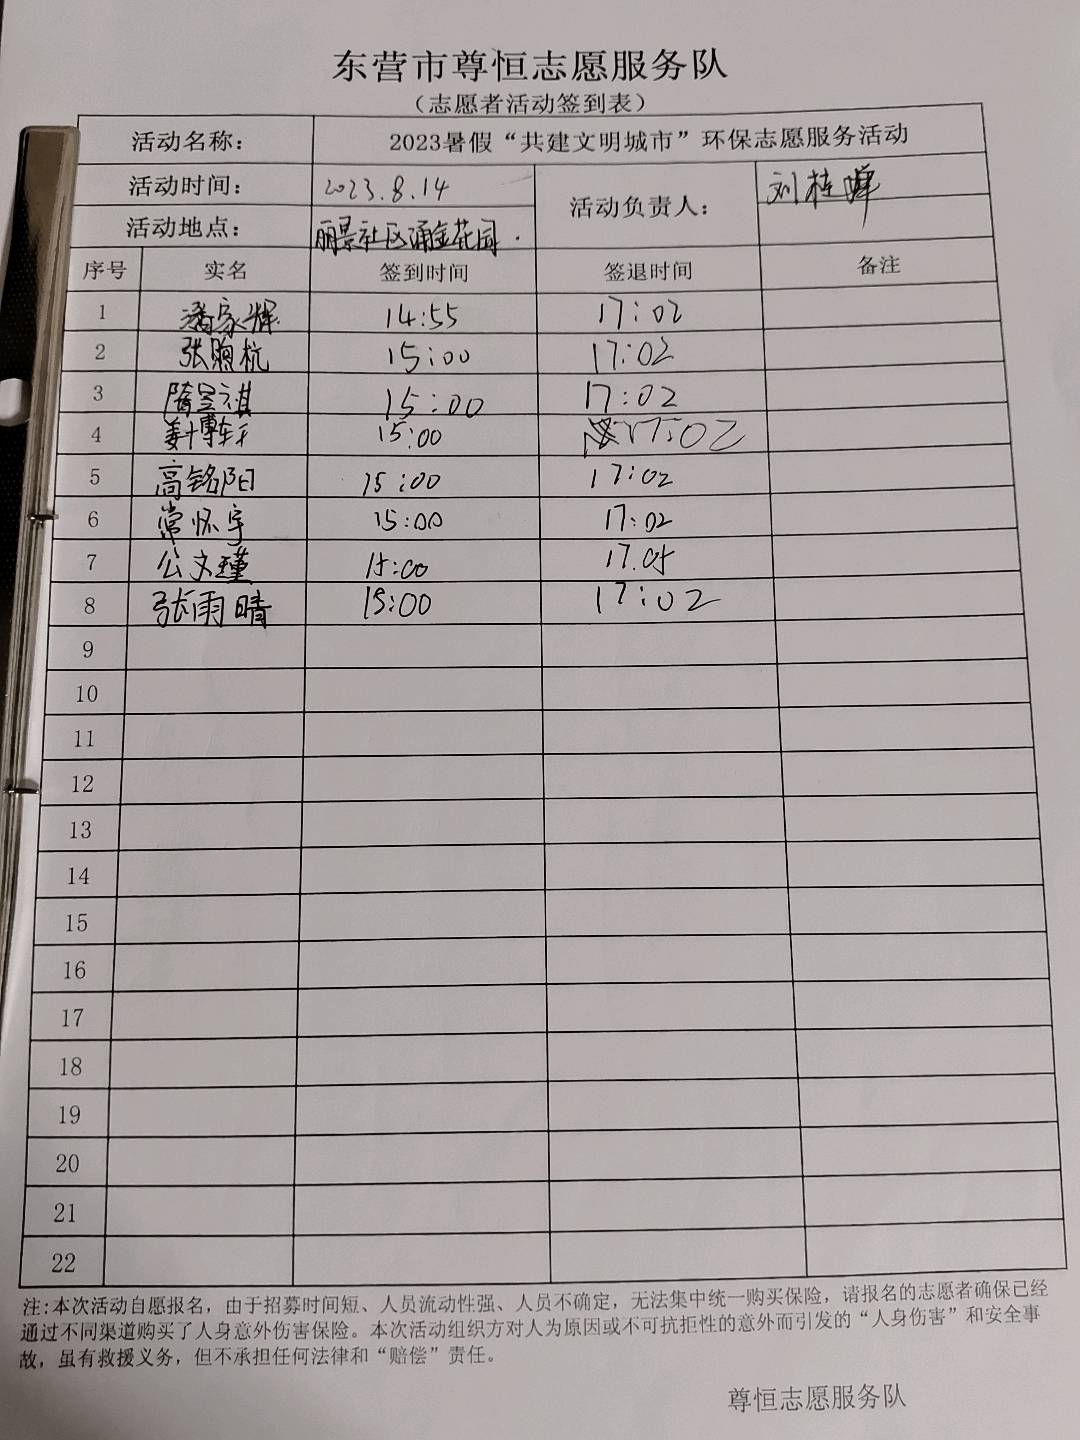 东营市尊恒志愿服务队
（志愿者活动签到表）
活动名称： 2023暑假“共建文明城市”环保志愿服务活动
活动时间： 2023.8.14 活动负责人： 刘桂
活动地点： 丽景社区涌金花园.
序号 实名 签到时间 签退时间 备注
1 潘家辉 14:55 17:02
2 张煦杭 15:00 17:02
3 隋昱祺 15:00 17:02
4 姜博轩 15:00 17:02
5 高铭阳 15:00 17:02
6 常怀宇 15:00 17:02
7 公文瑾 15:00 17.05
8 张雨晴 15:00 17:02
9
10
11
12
13
14
15
16
17
18
19
20
21
22
注:本次活动自愿报名，由于招募时间短、人员流动性强、人员不确定，无法集中统一购买保险，请报名的志愿者确保已经
通过不同渠道购买了人身意外伤害保险。本次活动组织方对人为原因或不可抗拒性的意外而引发的“人身伤害”和安全事
故，虽有救援义务，但不承担任何法律和“赔偿”责任。
尊恒志愿服务队